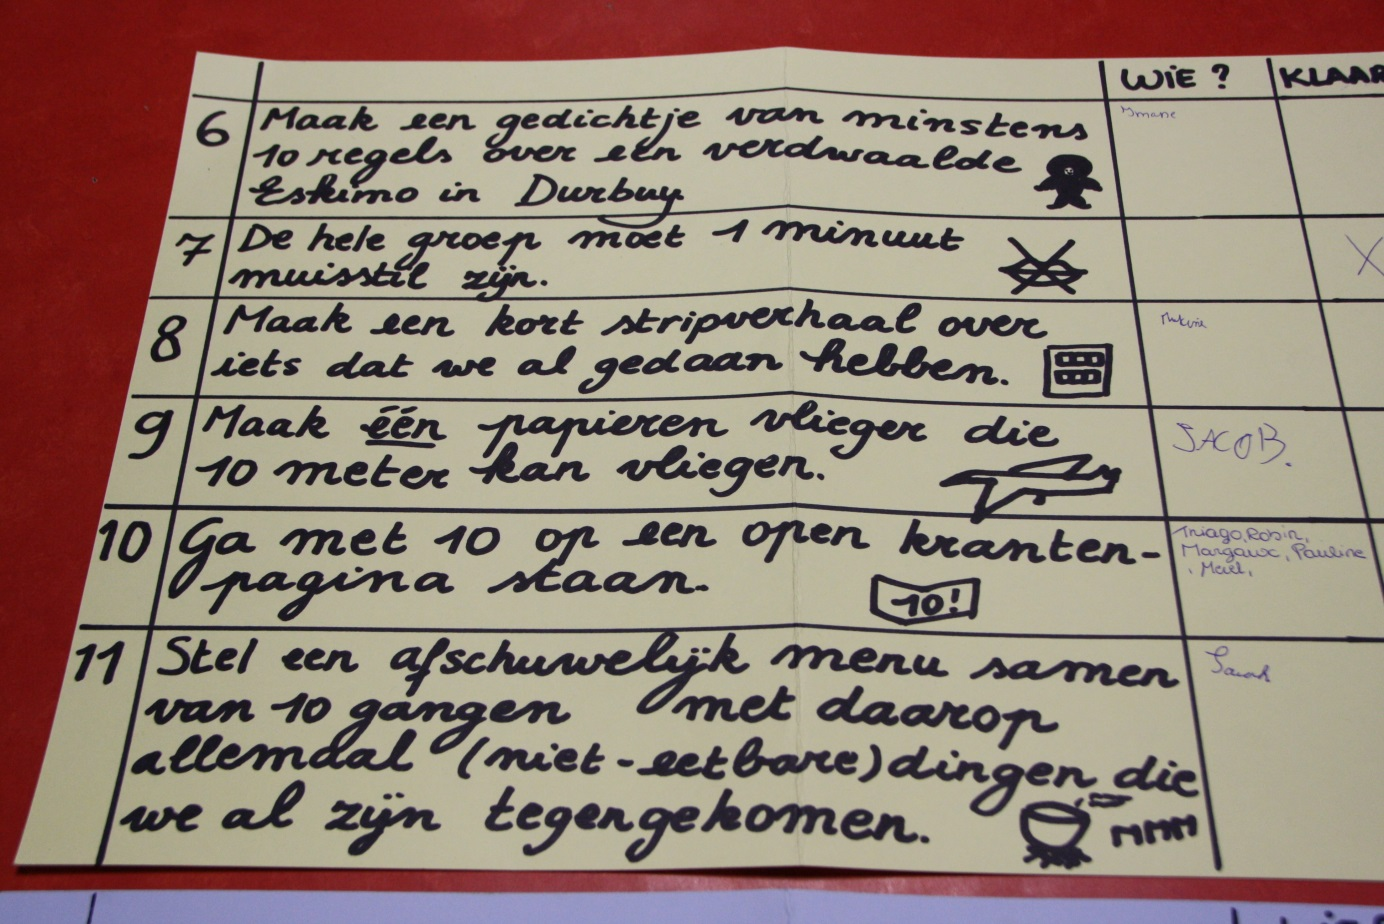 WIE ? KLAAR
6 Maak een gedichtje van minstens Imane
10 regels over een verdwaalde
Eskimo in Durbuy
7 De hele groep moet 1 minuut X
muisstil zijn.
8 Maak een kort stripverhaal over
iets dat we al gedaan hebben.
9 Maak één papieren vlieger die JACOB.
10 meter kan vliegen.
10 Ga met 10 op een open kranten- Thiago, Robin,
Margaux, Pauline
pagina staan. , Merel,
10!
11 Stel een afschuwelijk menu samen Sarah
van 10 gangen met daarop
allemaal (niet-eetbare) dingen die
we al zijn tegengekomen. MMM